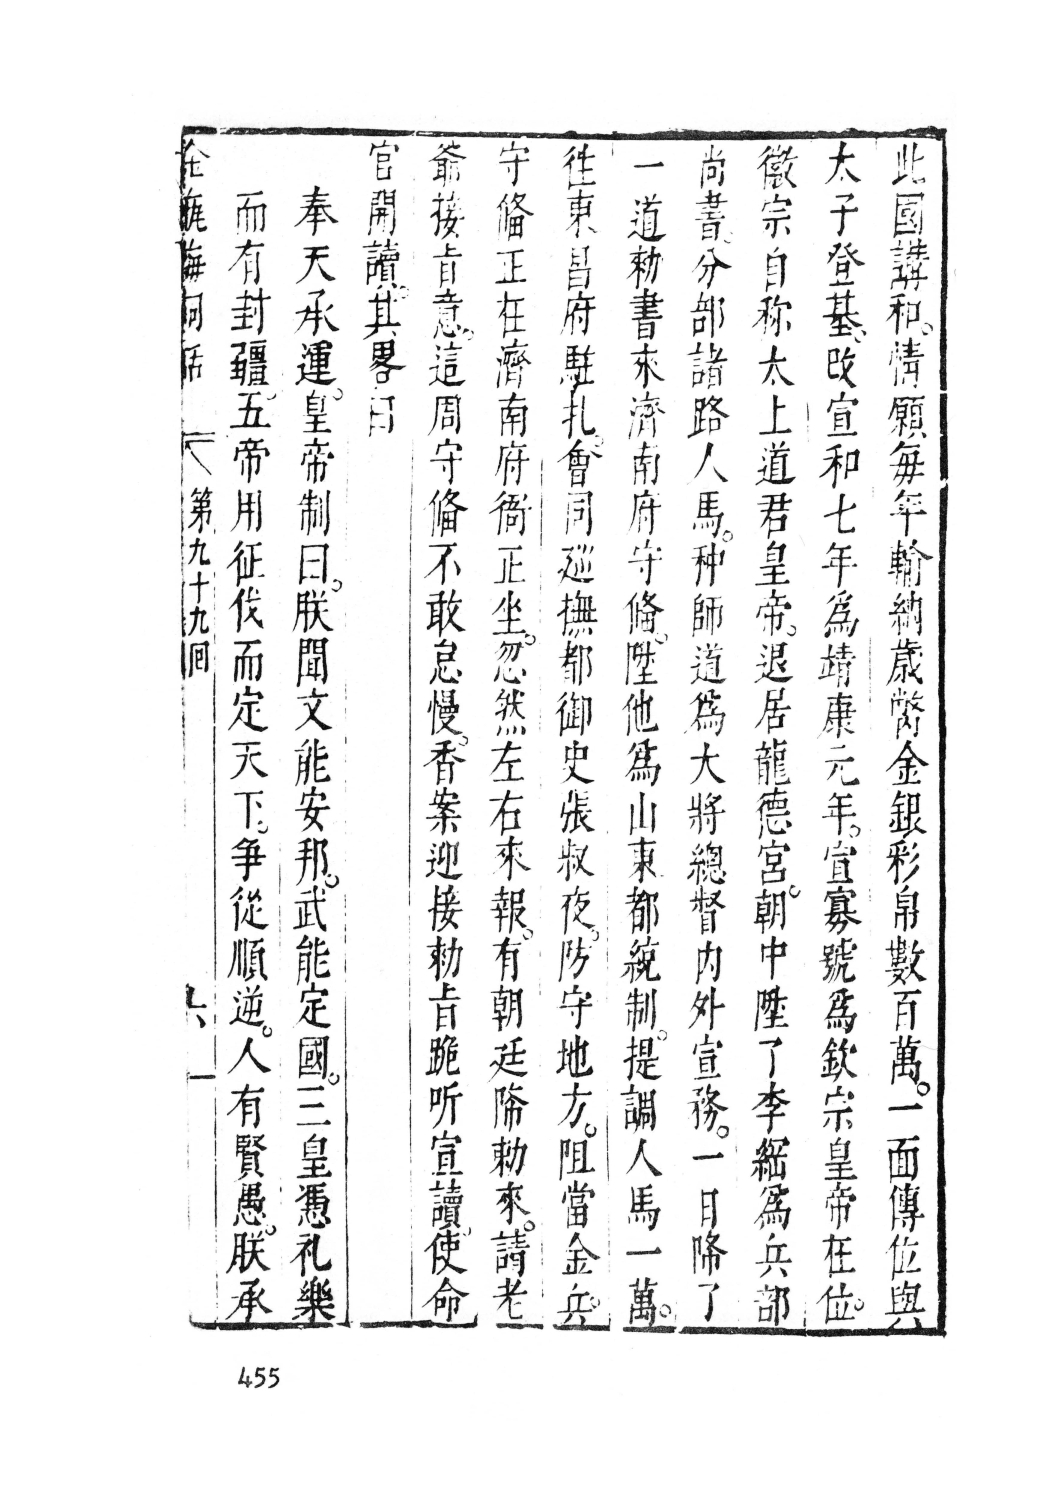 此國講和。情願每年輸納歲幣金銀彩帛數百萬。一面傳位與
太子登基、改宣和七年爲靖康元年。宣寡號爲欽宗皇帝在位。
徽宗自称太上道君皇帝。退居龍德宮。朝中陞了李綱爲兵部
尚書、分部諸路人馬。种師道爲大將總督内外宣務。一日降了
一道勅書來濟南府守俻。陞他爲山東都統制。提調人馬一萬。
徃東昌府駐扎。會同廵撫都御史張叔夜。防守地方。阻當金兵。
守俻正在濟南府衙正坐。忽然左右來報。有朝廷降勅來。請老
爺接旨意。這周守俻不敢怠慢。香案迎接勅旨跪听宣讀。使命
官開讀。其畧曰
奉天承運。皇帝制曰。朕聞文能安邦。武能定國。三皇憑礼樂
而有封疆。五帝用征伐而定天下。争從順逆。人有賢愚。朕承
金瓶梅詞話 第九十九回 六
455